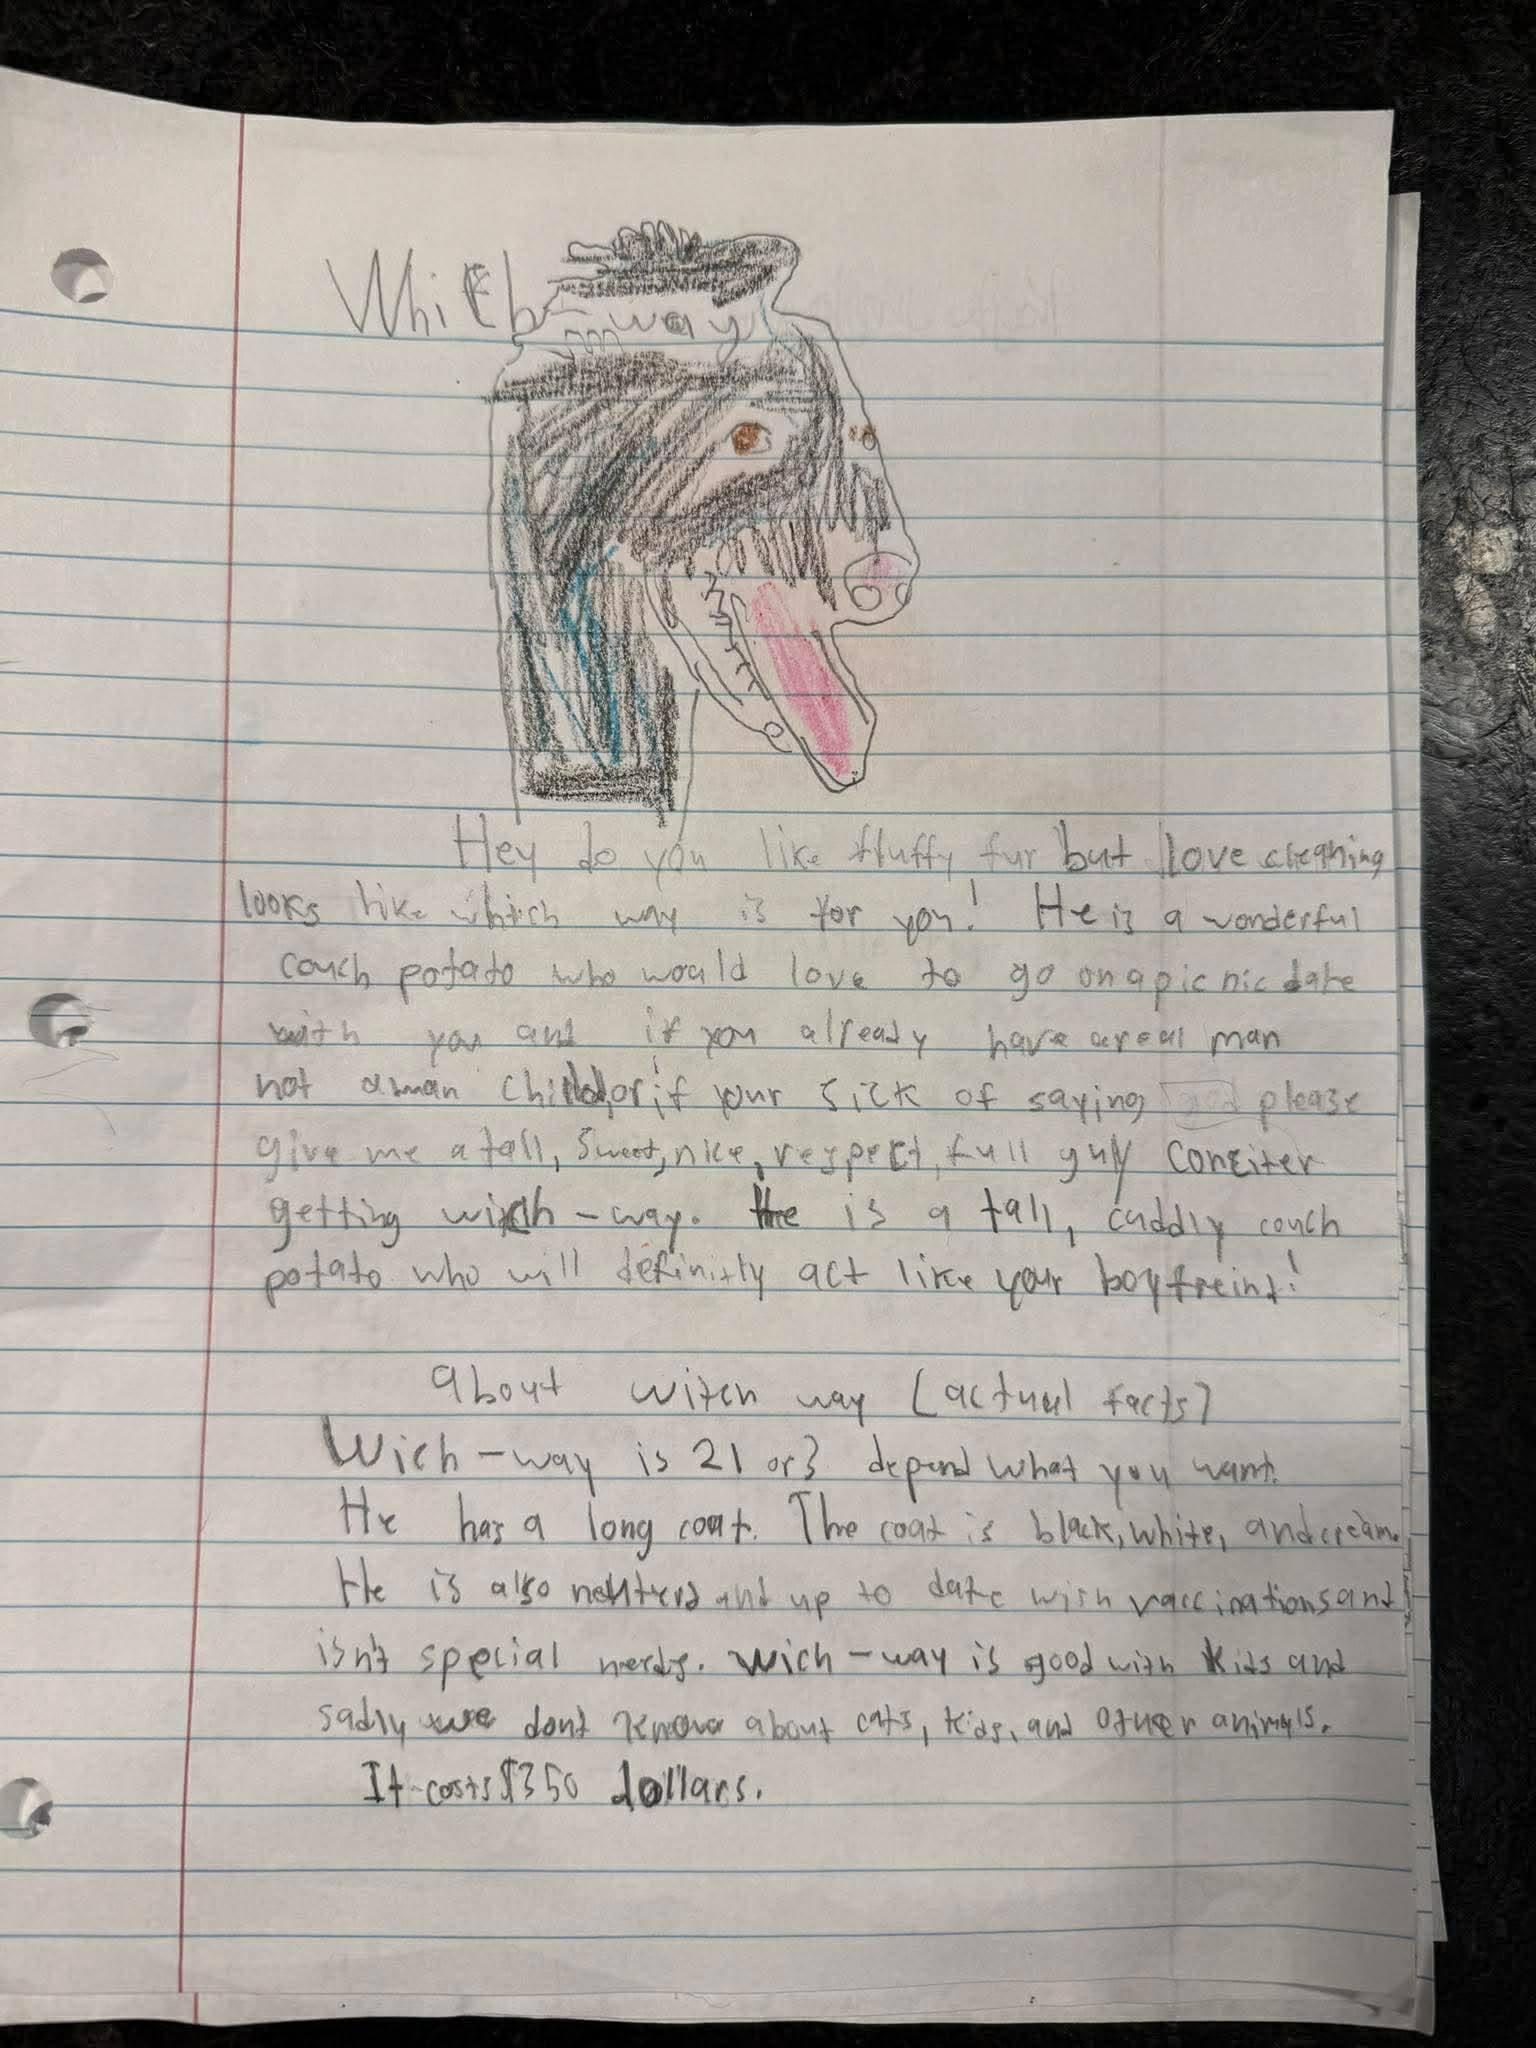 Which-way
Hey do you like fluffy fur but love cleaning
looks like which way is for you! He is a wonderful
couch potato who would love to go on a picnic date
with you and if you already have a real man
not a man child, or if your sick of saying please
give me a tall, sweet, nice, respect, full guy conziter
getting wich-way. He is a tall, cuddly couch
potato who will definitly act like your boyfreint!
about witch way (actual facts)
Wich-way is 21 or 3 depend what you want.
He has a long coat. The coat is black, white, and cream.
He is also neuterd and up to date with vaccinations and
isn't special needs. Wich-way is good with kids and
sadly we dont know about cats, kids, and other animals.
It costs $350 dollars.